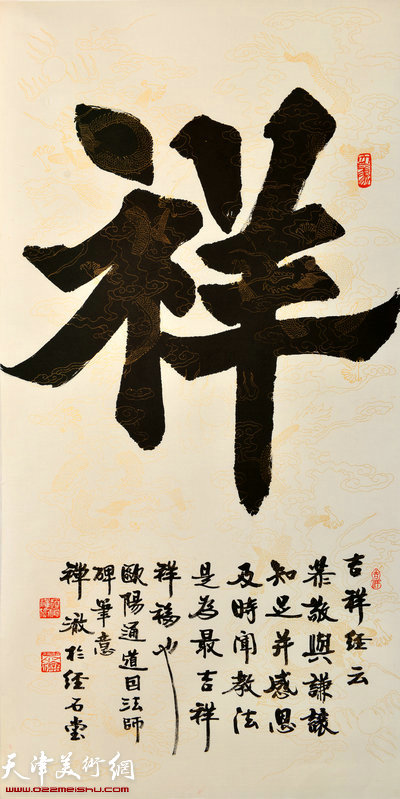 祥
吉祥经云
恭敬與謙讓
知足并感恩
及時聞教法
是為最吉祥
祥福也
歐陽通道因法師
碑筆意
禅澈於经石堂
天津美術網
www.022meishu.com